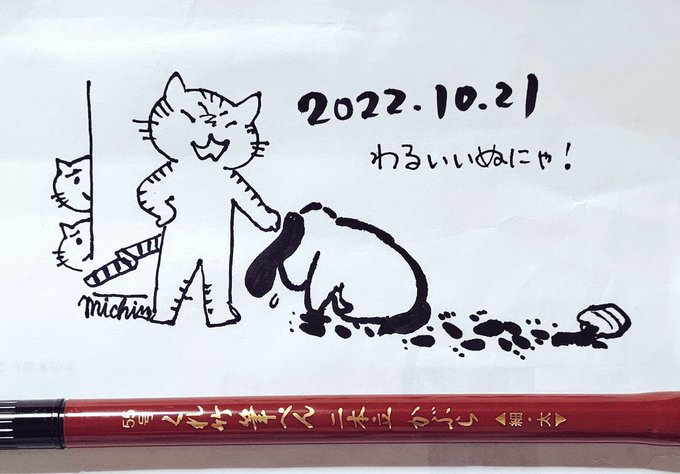 2022.10.21
わるいいぬにゃ!
michin
55号 くれ竹筆ぺん 二本立 かぶら ▲細・太▼